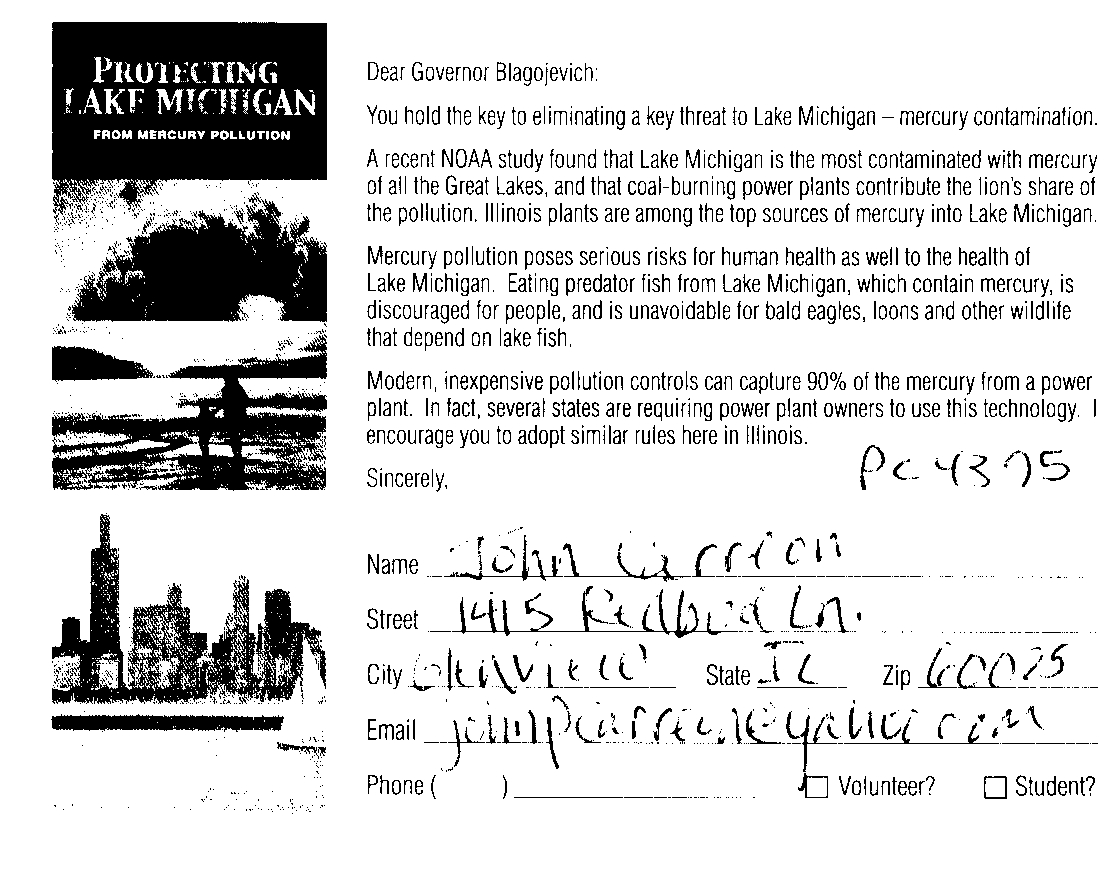 PROTECTING
LAKE MICHIGAN
FROM MERCURY POLLUTION
Dear Governor Blagojevich:
You hold the key to eliminating a key threat to Lake Michigan – mercury contamination.
A recent NOAA study found that Lake Michigan is the most contaminated with mercury
of all the Great Lakes, and that coal-burning power plants contribute the lion's share of
the pollution. Illinois plants are among the top sources of mercury into Lake Michigan.
Mercury pollution poses serious risks for human health as well to the health of
Lake Michigan. Eating predator fish from Lake Michigan, which contain mercury, is
discouraged for people, and is unavoidable for bald eagles, loons and other wildlife
that depend on lake fish.
Modern, inexpensive pollution controls can capture 90% of the mercury from a power
plant. In fact, several states are requiring power plant owners to use this technology. I
encourage you to adopt similar rules here in Illinois.
PC 4375
Sincerely,
Name John Carrion
Street 1415 Redbud Ln.
City Glenview State IL Zip 60025
Email johnpcarrion@yahoo.com
Phone ( )
Volunteer? Student?